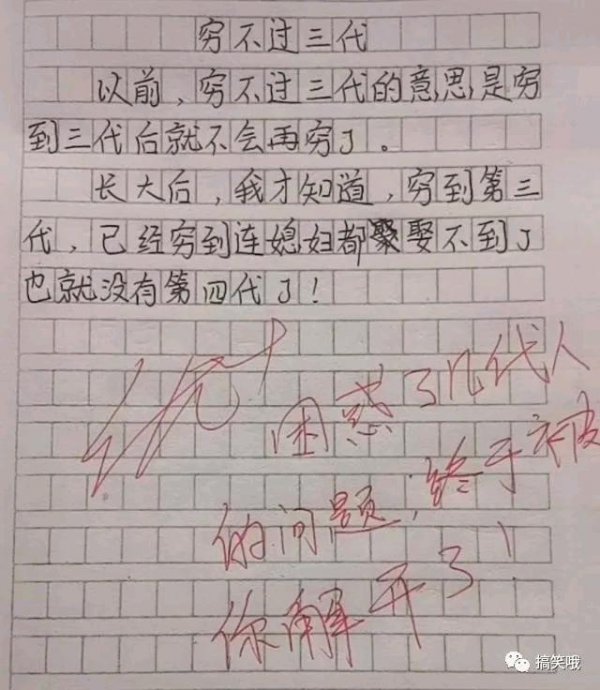 穷不过三代
以前，穷不过三代的意思是穷
到三代后就不会再穷了。
长大后，我才知道，穷到第三
代，已经穷到连媳妇都聚娶不到了
也就没有第四代了！
优+
困惑了几代人
的问题，终于被
你解开了！
搞笑哦